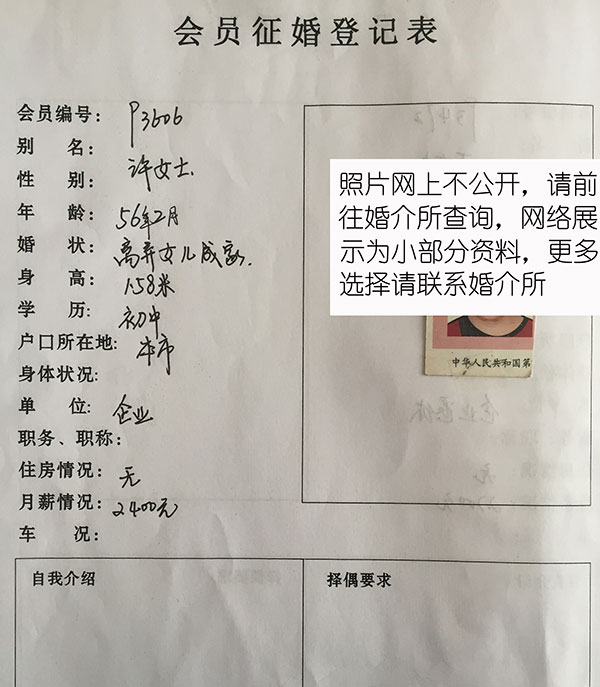 会员征婚登记表
会员编号： P3606
别 名：
许女士
性 别：
年 龄： 56年2月
婚 状： 离异女儿成家.
身 高： 1.58米
学 历： 初中
户口所在地: 本市
身体状况:
单 位: 企业
职务、职称:
住房情况： 无
月薪情况: 2400元
车 况：
照片网上不公开，请前
往婚介所查询，网络展
示为小部分资料，更多
选择请联系婚介所
中华人民共和国第
企业退休
无
自我介绍
择偶要求